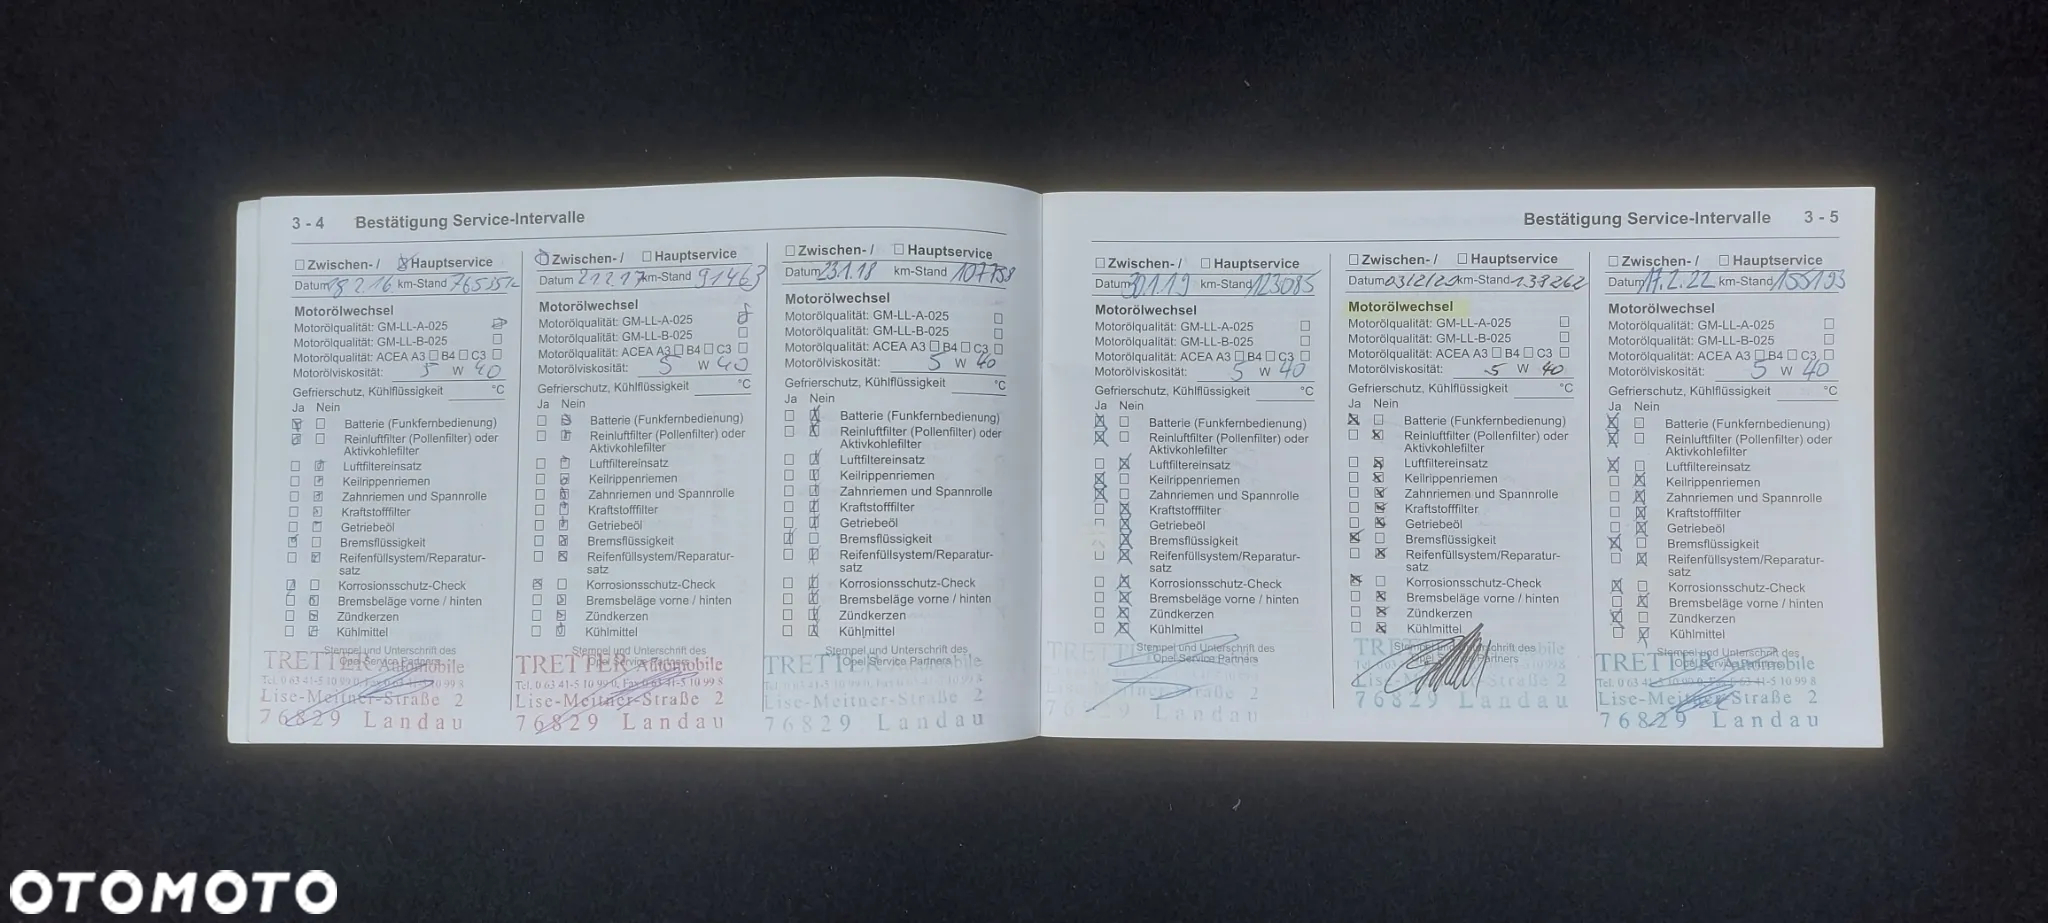 3 - 4 Bestätigung Service-Intervalle
☐ Zwischen- / ☒ Hauptservice
Datum 18.2.16 km-Stand
Motorölwechsel
Motorölqualität: GM-LL-A-025 ☒
Motorölqualität: GM-LL-B-025 ☐
Motorölqualität: ACEA A3 ☐ B4 ☐ C3 ☐
Motorölviskosität: 5 W 40
Gefrierschutz, Kühlflüssigkeit °C
Ja Nein
☒ ☐ Batterie (Funkfernbedienung)
☒ ☐ Reinluftfilter (Pollenfilter) oder
Aktivkohlefilter
☐ ☒ Luftfiltereinsatz
☐ ☒ Keilrippenriemen
☐ ☒ Zahnriemen und Spannrolle
☐ ☒ Kraftstofffilter
☐ ☒ Getriebeöl
☒ ☐ Bremsflüssigkeit
☐ ☒ Reifenfüllsystem/Reparatur-
satz
☒ ☐ Korrosionsschutz-Check
☐ ☒ Bremsbeläge vorne / hinten
☐ ☒ Zündkerzen
☐ ☒ Kühlmittel
Stempel und Unterschrift des
Opel Service Partners
TRETTER Automobile
Tel. 0 63 41-5 10 99 0, Fax 0 63 41-5 10 99 8
Lise-Meitner-Straße 2
76829 Landau
☒ Zwischen- / ☐ Hauptservice
Datum 21.2.17 km-Stand 91463
Motorölwechsel
Motorölqualität: GM-LL-A-025 ☒
Motorölqualität: GM-LL-B-025 ☐
Motorölqualität: ACEA A3 ☐ B4 ☐ C3 ☐
Motorölviskosität: 5 W 40
Gefrierschutz, Kühlflüssigkeit °C
Ja Nein
☐ ☒ Batterie (Funkfernbedienung)
☐ ☒ Reinluftfilter (Pollenfilter) oder
Aktivkohlefilter
☐ ☒ Luftfiltereinsatz
☐ ☒ Keilrippenriemen
☐ ☒ Zahnriemen und Spannrolle
☐ ☒ Kraftstofffilter
☐ ☒ Getriebeöl
☐ ☒ Bremsflüssigkeit
☐ ☒ Reifenfüllsystem/Reparatur-
satz
☒ ☐ Korrosionsschutz-Check
☐ ☒ Bremsbeläge vorne / hinten
☐ ☒ Zündkerzen
☐ ☒ Kühlmittel
Stempel und Unterschrift des
Opel Service Partners
TRETTER Automobile
Tel. 0 63 41-5 10 99 0, Fax 0 63 41-5 10 99 8
Lise-Meitner-Straße 2
76829 Landau
☐ Zwischen- / ☐ Hauptservice
Datum 23.1.18 km-Stand 107758
Motorölwechsel
Motorölqualität: GM-LL-A-025 ☐
Motorölqualität: GM-LL-B-025 ☐
Motorölqualität: ACEA A3 ☐ B4 ☐ C3 ☐
Motorölviskosität: 5 W 40
Gefrierschutz, Kühlflüssigkeit °C
Ja Nein
☐ ☒ Batterie (Funkfernbedienung)
☐ ☒ Reinluftfilter (Pollenfilter) oder
Aktivkohlefilter
☐ ☒ Luftfiltereinsatz
☐ ☒ Keilrippenriemen
☐ ☒ Zahnriemen und Spannrolle
☐ ☒ Kraftstofffilter
☐ ☒ Getriebeöl
☒ ☐ Bremsflüssigkeit
☐ ☒ Reifenfüllsystem/Reparatur-
satz
☐ ☒ Korrosionsschutz-Check
☐ ☒ Bremsbeläge vorne / hinten
☐ ☒ Zündkerzen
☐ ☒ Kühlmittel
Stempel und Unterschrift des
Opel Service Partners
TRETTER Automobile
Tel. 0 63 41-5 10 99 0, Fax 0 63 41-5 10 99 8
Lise-Meitner-Straße 2
76829 Landau
Bestätigung Service-Intervalle 3 - 5
☐ Zwischen- / ☐ Hauptservice
Datum 30.1.19 km-Stand 123085
Motorölwechsel
Motorölqualität: GM-LL-A-025 ☐
Motorölqualität: GM-LL-B-025 ☐
Motorölqualität: ACEA A3 ☐ B4 ☐ C3 ☐
Motorölviskosität: 5 W 40
Gefrierschutz, Kühlflüssigkeit °C
Ja Nein
☒ ☐ Batterie (Funkfernbedienung)
☒ ☐ Reinluftfilter (Pollenfilter) oder
Aktivkohlefilter
☐ ☒ Luftfiltereinsatz
☒ ☐ Keilrippenriemen
☒ ☐ Zahnriemen und Spannrolle
☐ ☒ Kraftstofffilter
☐ ☒ Getriebeöl
☐ ☒ Bremsflüssigkeit
☐ ☒ Reifenfüllsystem/Reparatur-
satz
☐ ☒ Korrosionsschutz-Check
☐ ☒ Bremsbeläge vorne / hinten
☐ ☒ Zündkerzen
☐ ☒ Kühlmittel
Stempel und Unterschrift des
Opel Service Partners
TRETTER
Lise-Meitner-Straße 2
76829 Landau
☐ Zwischen- / ☐ Hauptservice
Datum 03/2/20 km-Stand 138262
Motorölwechsel
Motorölqualität: GM-LL-A-025 ☐
Motorölqualität: GM-LL-B-025 ☐
Motorölqualität: ACEA A3 ☐ B4 ☐ C3 ☐
Motorölviskosität: 5 W 40
Gefrierschutz, Kühlflüssigkeit °C
Ja Nein
☒ ☐ Batterie (Funkfernbedienung)
☐ ☒ Reinluftfilter (Pollenfilter) oder
Aktivkohlefilter
☐ ☒ Luftfiltereinsatz
☐ ☒ Keilrippenriemen
☐ ☒ Zahnriemen und Spannrolle
☐ ☒ Kraftstofffilter
☐ ☒ Getriebeöl
☒ ☐ Bremsflüssigkeit
☐ ☒ Reifenfüllsystem/Reparatur-
satz
☒ ☐ Korrosionsschutz-Check
☐ ☒ Bremsbeläge vorne / hinten
☐ ☒ Zündkerzen
☐ ☒ Kühlmittel
Stempel und Unterschrift des
Opel Service Partners
Straße 2
76829 Landau
☐ Zwischen- / ☐ Hauptservice
Datum 17.2.22 km-Stand 155193
Motorölwechsel
Motorölqualität: GM-LL-A-025 ☐
Motorölqualität: GM-LL-B-025 ☐
Motorölqualität: ACEA A3 ☐ B4 ☐ C3 ☐
Motorölviskosität: 5 W 40
Gefrierschutz, Kühlflüssigkeit °C
Ja Nein
☒ ☐ Batterie (Funkfernbedienung)
☒ ☐ Reinluftfilter (Pollenfilter) oder
Aktivkohlefilter
☒ ☐ Luftfiltereinsatz
☐ ☒ Keilrippenriemen
☐ ☒ Zahnriemen und Spannrolle
☐ ☒ Kraftstofffilter
☐ ☒ Getriebeöl
☒ ☐ Bremsflüssigkeit
☐ ☒ Reifenfüllsystem/Reparatur-
satz
☒ ☐ Korrosionsschutz-Check
☐ ☒ Bremsbeläge vorne / hinten
☒ ☐ Zündkerzen
☐ ☒ Kühlmittel
Stempel und Unterschrift des
Opel Service Partners
TRETTER Automobile
Tel. 0 63 41-5 10 99 0, Fax 0 63 41-5 10 99 8
Lise-Meitner-Straße 2
76829 Landau
OTOMOTO